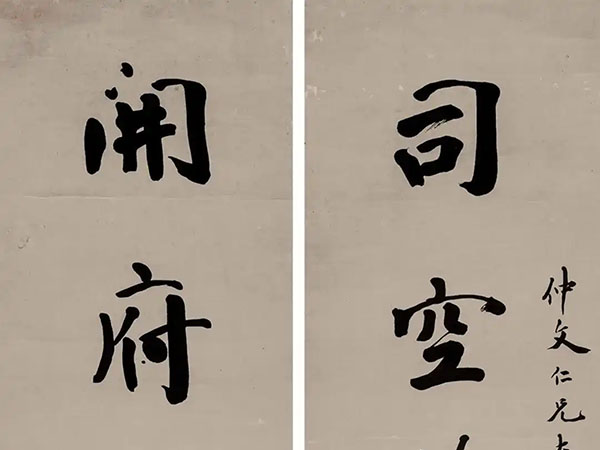 司空
仲文仁兄大
開府